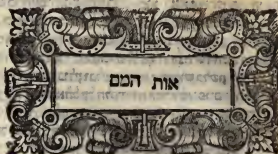 אות המם